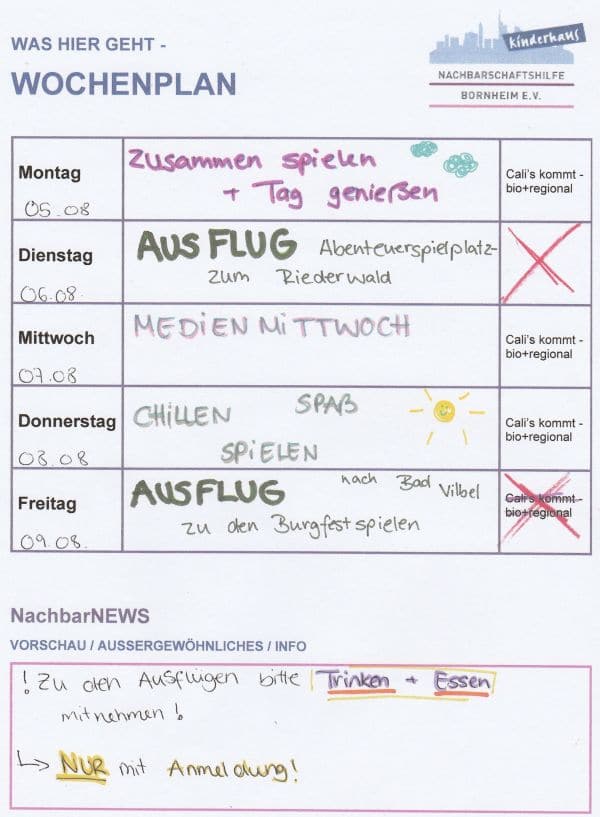 WAS HIER GEHT -
WOCHENPLAN
kinderhaus
NACHBARSCHAFTSHILFE
BORNHEIM E.V.
Montag
05.08
Zusammen spielen
+ Tag genießen
Cali's kommt -
bio+regional
Dienstag
06.08.
AUSFLUG Abenteuerspielplatz-
zum Riederwald
Mittwoch
07.08
MEDIEN MITTWOCH
Cali's kommt -
bio+regional
Donnerstag
08.08
CHILLEN SPAß
SPIELEN
Cali's kommt -
bio+regional
Freitag
09.08.
AUSFLUG nach Bad Vilbel
zu den Burgfestspielen
Cali's kommt -
bio+regional
NachbarNEWS
VORSCHAU / AUSSERGEWÖHNLICHES / INFO
! Zu den Ausflügen bitte Trinken + Essen
mitnehmen!
↳ NUR mit Anmeldung!